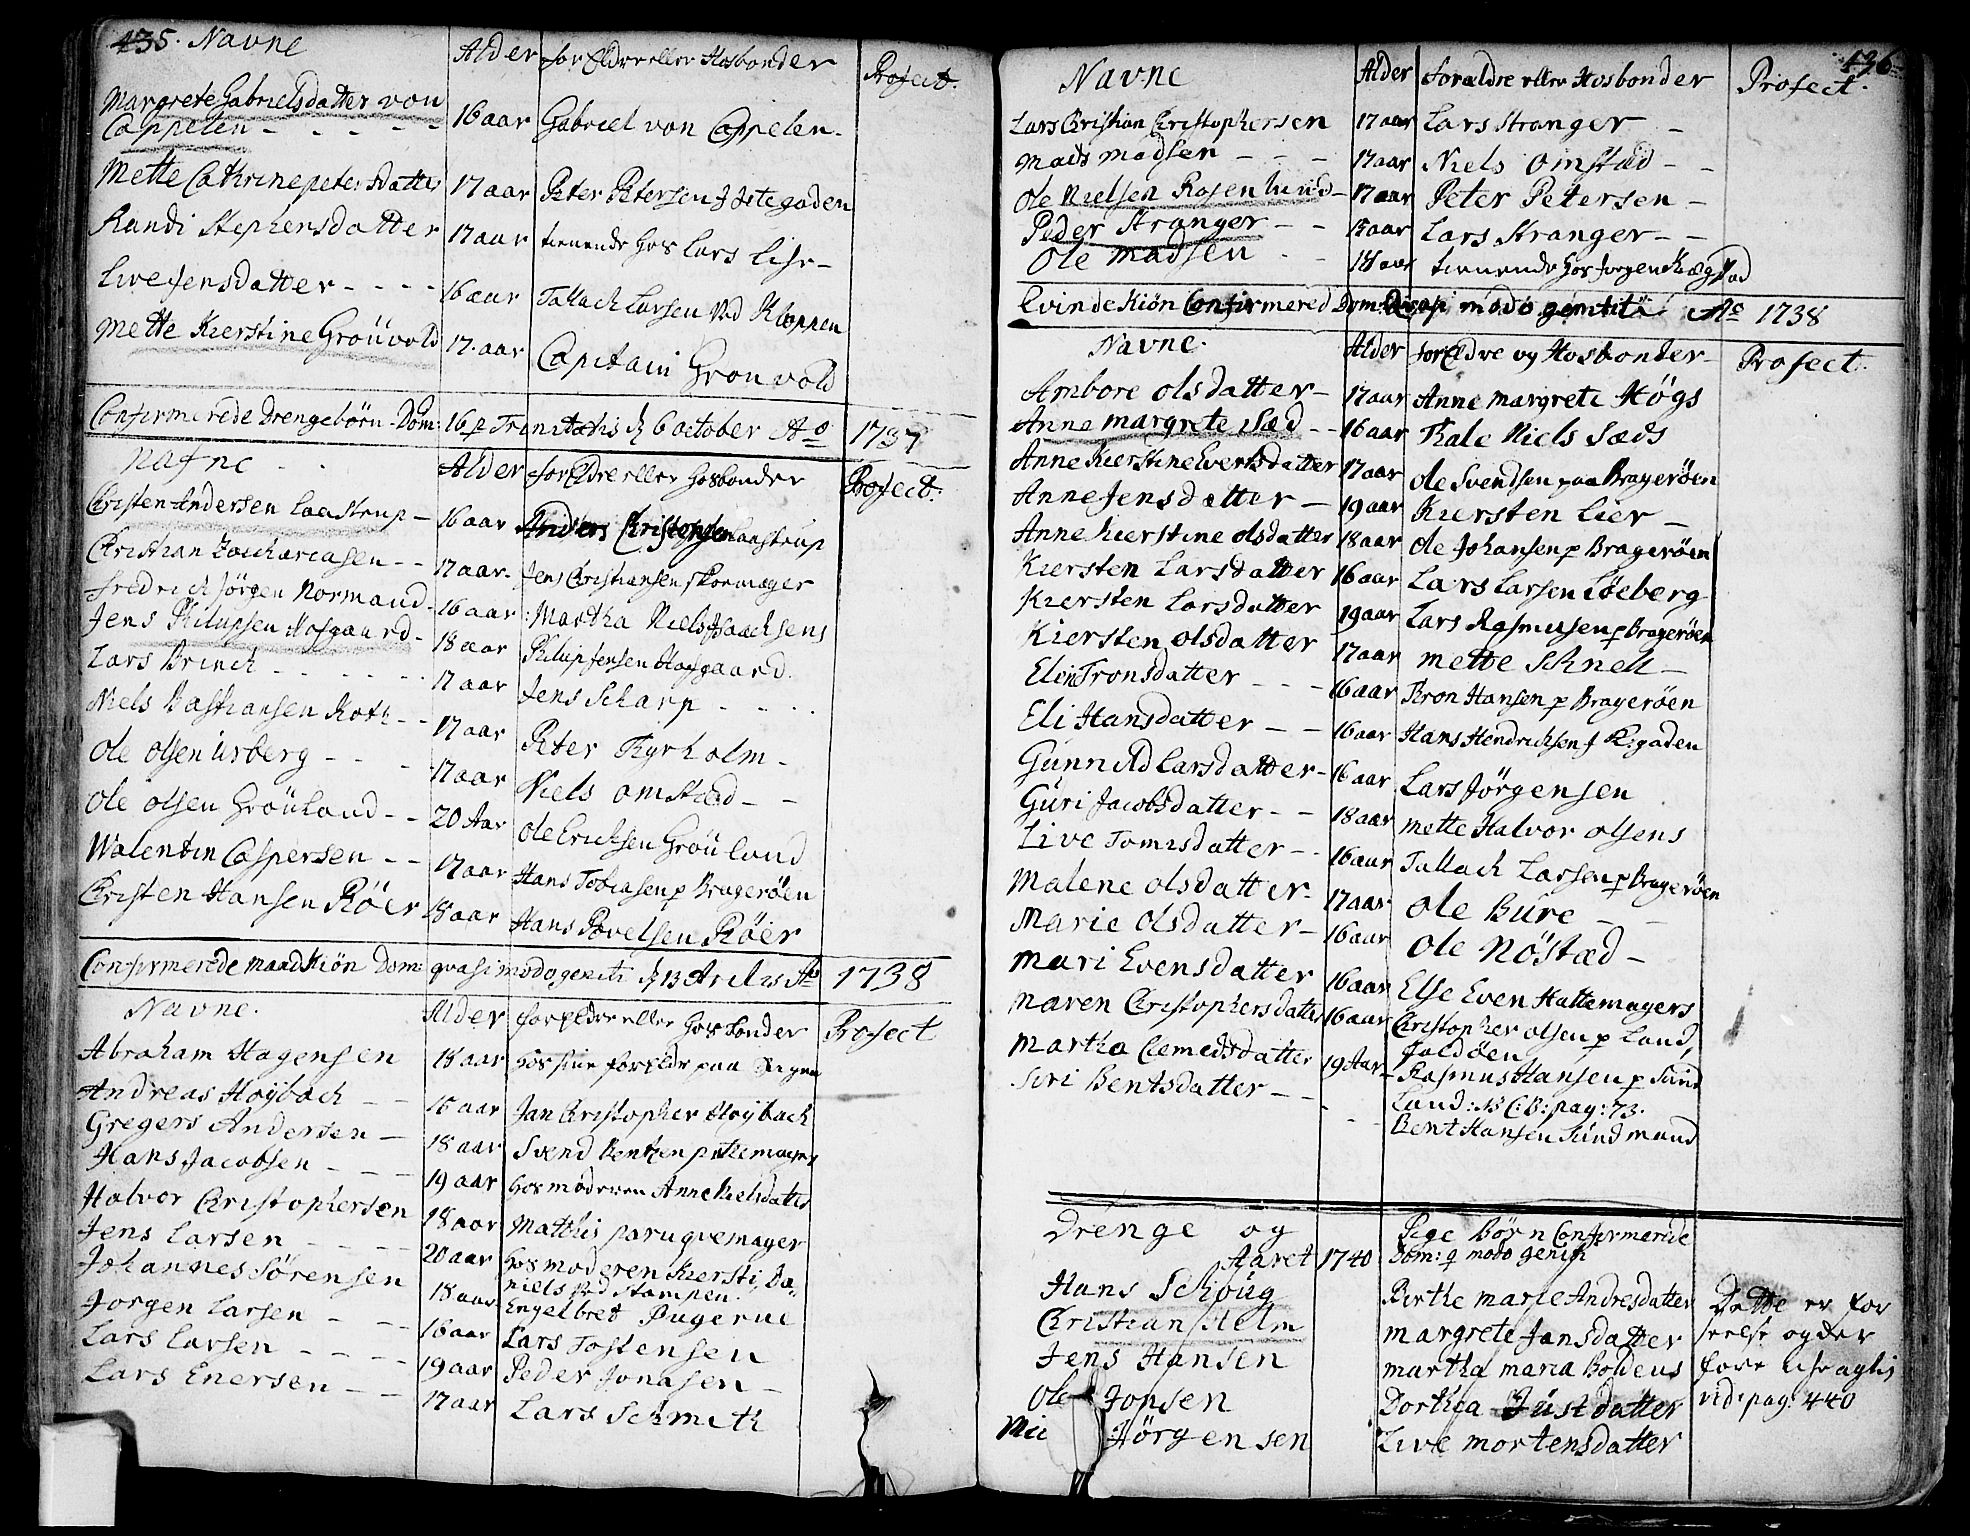 435. Navne Alder forÆldre eller Hosbonder Profect.
Margrete Gabrielsdatter von
Cappelen - - - - - 16 aar Gabriel von Cappelen -
Mette Catrine petersdatter 17 aar Peter Petersen J Istegaden
Randi Stephensdatter 17 aar tienende hos Lars Lihr -
Live Jensdatter - - - - 16 aar Tallach Larsen Ved Kloppen
Mette Kierstine Groüvold 17. aar Capitain Gronvold
Confirmerede Drengebörn - Dom: 16 p Trinitatis d 6 october Ao 1737
Nafne Alder forÆldre eller hosbonder Profect:
Christen Andersen Laastrup - 16 aar Anders Christensen Laastrup
Christian Zachariasen - - 17 aar. Jens Christiansen skomager
fredrich Jörgen Normand - 16 aar : Martha Niels Isaachsens
Jens Philipsen Hofgaard - 18 aar Philip Jensen Hofgaard.
Lars Brinch - - - - - - 17 aar Jens Scharp - - - -
Niels Bastiansen Roth - - 17 aar Peter Thyrholm -
Ole olsen Urberg - - - 17 aar Niels omstæd - -
Ole olsen Groüland - - 20 Aar Ole Erichsen Groüland
Walentin Caspersen - - 17 aar Hans Tobiasen p Bragerøen
Christen Hansen Röer 18 aar Hans Povelsen Röier
Confirmerede mandKiön Dom: qvasimodogeniti d 13 Aprilis Ao 1738
Navne. Alder forældre eller hosbonder Profect
Abraham Hagensen 18 aar hos sine forældre paa
Andreas Hoÿbach - - 15 aar Jan Christopher Hoÿbach
Gregers Andersen - 18 aar Svend Bentzen pottemager
Hans Jacobsen - - - 19 aar hos moderen Anne Nielsdatter
Halvor Christophersen 18 aar Matthis paruqvemager
Jens Larsen - - - - 20 aar hos moderen Kiersti, Da.
Johannes Sörensen 18 aar niels ved Stampen.
Jorgen Larsen - - - 16 aar Engelbret Bugerue
Lars Larsen - - - - 19 aar Lars Tostensen
Lars Enersen - - 17 aar Peder Jonasen -
Lars Schmith
436
Navne Alder forældre eller Hosbonder Profect.
Lars Christian Christophersen 17 aar Lars Stranger -
Mads madsen - - - 17 aar Niels omstad - -
Ole Nielsen Rosenlund - 17 aar Peter Petersen -
Peder Stranger - - 15 aar Lars Stranger - -
Ole madsen - - 18 aar tienende hos Jorgen
Qvinde Kiön Confirmered Dom: Qvasi modo genititi Ao 1738
Navne. Alder forÆldre og Hosbonder Profect.
Ambore olsdatter - 17 aar Anne Margrete Högs
Anne margrete Sæd - - 16 aar Kale Niels Sæds
Anne Kierstine Evertsdatter 17 aar ole Svendsen paa Bragerøen
Anne Jensdatter - 19 aar Kiersten Lier -
Anne Kierstine olsdatter 18 aar ole Johansen p Bragerøen
Kiersten Larsdatter 16 aar Lars Larsen Löeberg
Kiersten Larsdatter 19 aar Lars Rasmusen p Bragerøen
Kiersten olsdatter 17 aar mette Schnell -
Elin Tronsdatter - - - 16 aar Tron Hansen p Bragerøen
Eli Hansdatter - - 16 aar Hans Hendrichsen J K:gaden
Gunnild Larsdatter - 16 aar Lars Jörgensen
Guri Jacobsdatter - - 18 aar mette Halvor olsens
Live Tomisdatter - - 16 aar Tallach Larsen p Bragerøen
Malene olsdatter - 17 aar ole Büre - -
Marie olsdatter - 16 aar Ole Nöstæd -
Mari Evensdatter 16 aar Else Even Hattemagers
Maren Christophersdatter 16 aar Christopher olsen p Land,
faldöen
Martha Clemedsdatter 19 Aar - Rasmus Hansen p Sund
Siri Bentsdatter - - - Land: :B: pag: 73.
- - Bent Hansen Sundmand
Drenge og Pige Börn Confirmerede
Aaret 1740 Dom: q modo genih
Hans Schoüg Birthe marie Andresdatter Dette er for
Christian Holm margrete Jansdatter seelse og der
Jens Hansen martha maria Boldeus fore
Ole Jonsen Dorthea Justdatter vid: pag: 440
Jörgensen Live mortensdatter